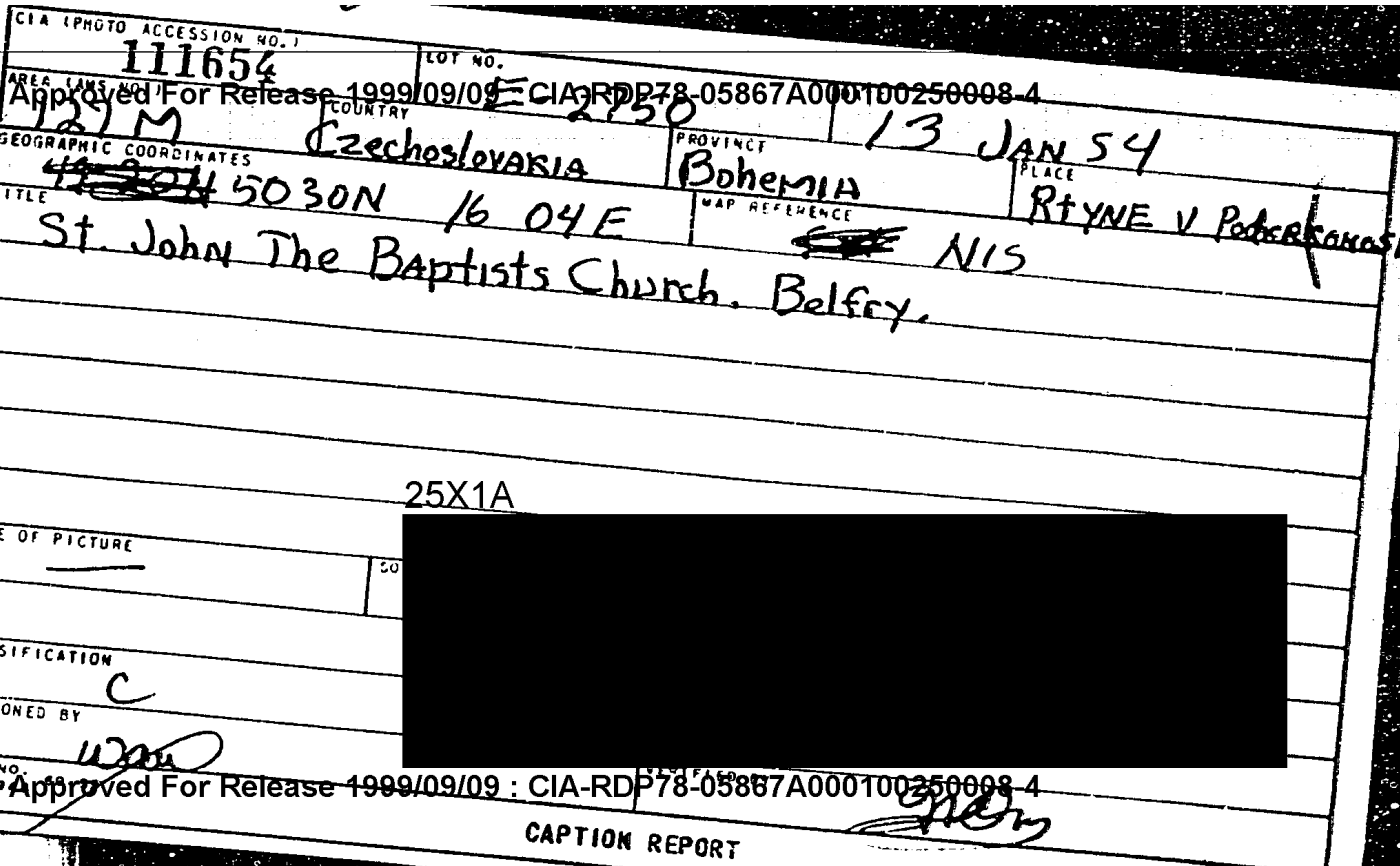 CIA (PHOTO ACCESSION NO.)
111654
LOT NO.
AREA (AMS NO.)
Approved For Release 1999/09/09 : CIA-RDP78-05867A000100250008-4
E-2750
13 JAN 54
COUNTRY
Czechoslovakia
PROVINCE
Bohemia
PLACE
Rtyne v
GEOGRAPHIC COORDINATES
5030N 16 04 E
MAP REFERENCE
NIS
TITLE
St. John The Baptists Church. Belfry.
25X1A
E OF PICTURE
SO
SIFICATION
C
ONED BY
NO.
Approved For Release 1999/09/09 : CIA-RDP78-05867A000100250008-4
CAPTION REPORT